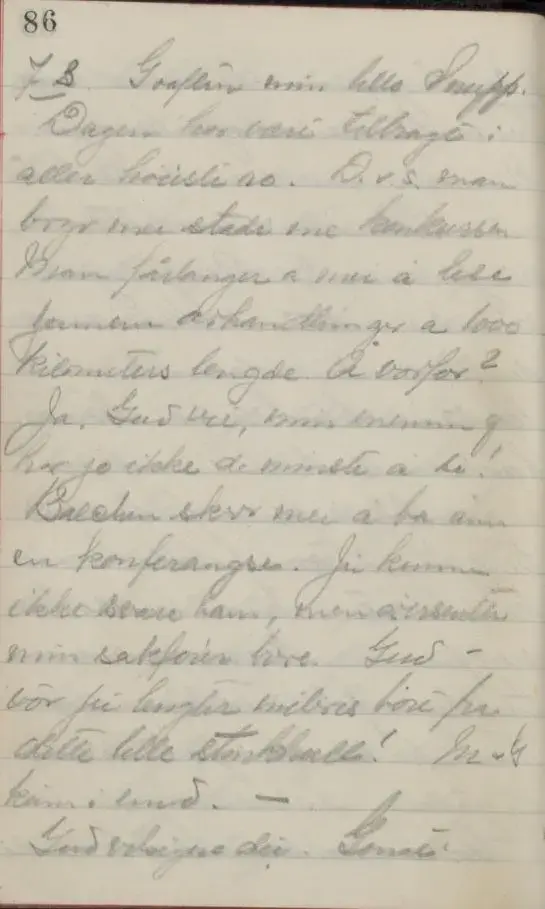 86
7/8. Goaften min lille Snupp.
Dagen har vært tilbragt i
aller høieste ro. D.v.s. man
bryr mei stadi me konkursen
Man forlanger a mei å lese
jennem avhandlinger a 1000
kilometers lengde. Å vorfor?
Ja, Gud vei, min mening
har jo ikke de minste å si!
skrev mei å ba åmm
en konferangse. Jei kunne
ikke svare ham, men
min sakfører bore. Gud –
vor jei lengter bort fra
dette lille! M
kom i
Gud velsigne dei.